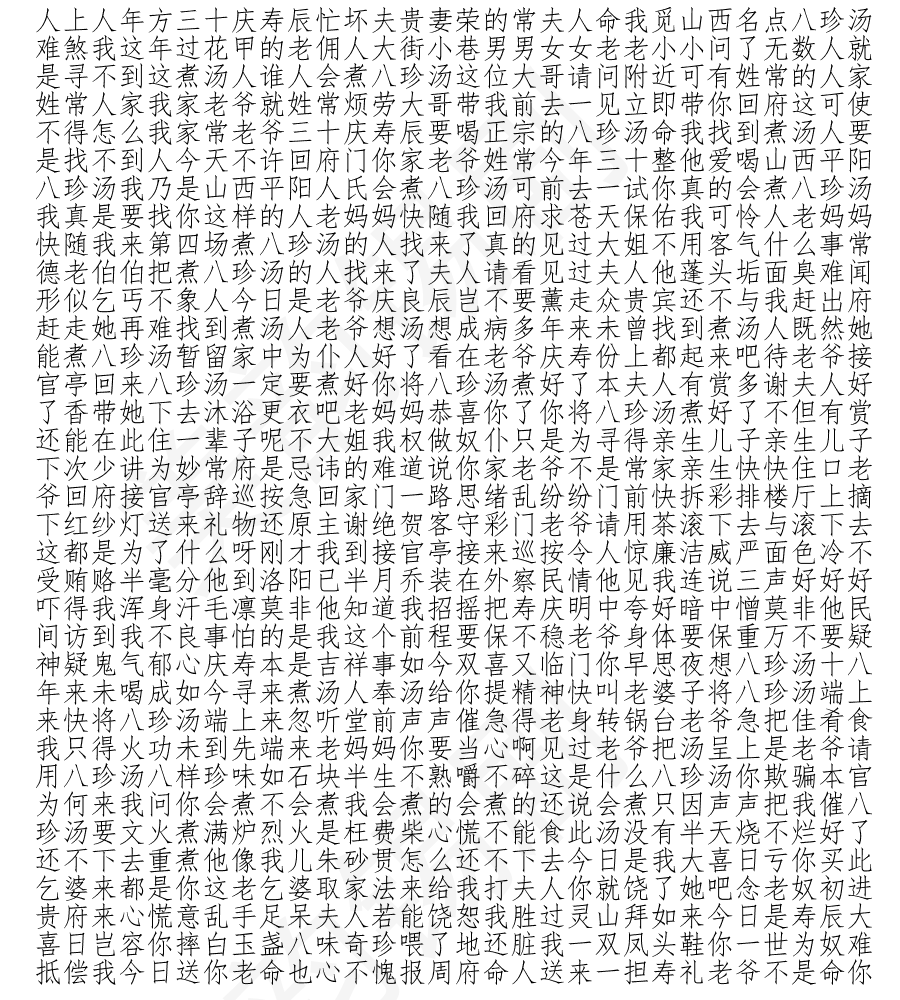 人上人年方三十庆寿辰忙坏夫贵妻荣的常夫人命我觅山西名点八珍汤
难煞我这年过花甲的老佣人大街小巷男男女女老老小小问了无数人就
是寻不到这煮汤人谁人会煮八珍汤这位大哥请问附近可有姓常的人家
姓常人家我家老爷就姓常烦劳大哥带我前去一见立即带你回府这可使
不得怎么我家常老爷三十庆寿辰要喝正宗的八珍汤命我找到煮汤人要
是找不到人今天不许回府门你家老爷姓常今年三十整他爱喝山西平阳
八珍汤我乃是山西平阳人氏会煮八珍汤可前去一试你真的会煮八珍汤
我真是要找你这样的人老妈妈快随我回府求苍天保佑我可怜人老妈妈
快随我来第四场煮八珍汤的人找来了真的见过大姐不用客气什么事常
德老伯伯把煮八珍汤的人找来了夫人请看见过夫人他蓬头垢面臭难闻
形似乞丐不象人今日是老爷庆良辰岂不要薰走众贵宾还不与我赶出府
赶走她再难找到煮汤人老爷想汤想成病多年来未曾找到煮汤人既然她
能煮八珍汤暂留家中为仆人好了看在老爷庆寿份上都起来吧待老爷接
官亭回来八珍汤一定要煮好你将八珍汤煮好了本夫人有赏多谢夫人好
了香带她下去沐浴更衣吧老妈妈恭喜你了你将八珍汤煮好了不但有赏
还能在此住一辈子呢不大姐我权做奴仆只是为寻得亲生儿子亲生儿子
下次少讲为妙常府是忌讳的难道说你家老爷不是常家亲生快快住口老
爷回府接官亭辞巡按急回家门一路思绪乱纷纷门前快拆彩排楼厅上摘
下红纱灯送来礼物还原主谢绝贺客守彩门老爷请用茶滚下去与滚下去
这都是为了什么呀刚才我到接官亭接来巡按令人惊廉洁威严面色冷不
受贿赂半毫分他到洛阳已半月乔装在外察民情他见我连说三声好好好
吓得我浑身汗毛凛莫非他知道我招摇把寿庆明中夸好暗中憎莫非他民
间访到我不良事怕的是我这个前程要保不稳老爷身体要保重万不要疑
神疑鬼气郁心庆寿本是吉祥事如今双喜又临门你早思夜想八珍汤十八
年来未喝成如今寻来煮汤人奉汤给你提精神快叫老婆子将八珍汤端上
来快将八珍汤端上来忽听堂前声声催急得老身转锅台老爷急把佳肴食
我只得火功未到先端来老妈妈你要当心啊见过老爷把汤呈上是老爷请
用八珍汤八样珍味如石块半生不熟嚼不碎这是什么八珍汤你欺骗本官
为何来我问你会煮不会煮我会煮的会煮的还说会煮只因声声把我催八
珍汤要文火煮满炉烈火是枉费柴心慌不能食此汤没有半天烧不烂好了
还不下去重煮他像我儿朱砂贯怎么还不下去今日是我大喜日亏你买此
乞婆来都是你这老乞婆取家法来给我打夫人你就饶了她吧念老奴初进
贵府来心慌意乱手足呆夫人若能饶恕我胜过灵山拜如来今日是寿辰大
喜日岂容你摔白玉盏八味奇珍喂了地还脏我一双凤头鞋你一世为奴难
抵偿我今日送你老命也心不愧报周府命人送来一担寿礼老爷不是命你